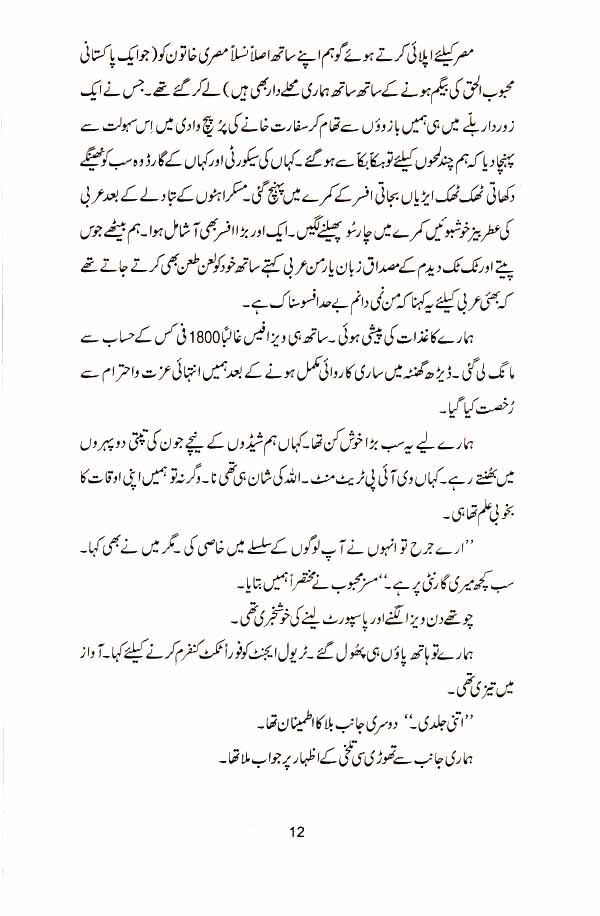 مصر کیلئے اپلائی کرتے ہوئے گو ہم اپنے ساتھ اصلاً نسلاً مصری خاتون کو (جو ایک پاکستانی
محبوب الحق کی بیگم ہونے کے ساتھ ساتھ ہماری محلے دار بھی ہیں) لے کر گئے تھے۔ جس نے ایک
زور دار ہلّے میں ہی ہمیں بازوؤں سے تھام کر سفارت خانے کی پُر پیچ وادی میں اِس سہولت سے
پہنچا دیا کہ ہم چند لمحوں کیلئے تو ہکّا بکّا سے ہو گئے۔ کہاں کی سیکورٹی اور کہاں کے گارڈ وہ سب کو ٹھینگے
دکھاتی ٹھک ٹھک ایڑیاں بجاتی افسر کے کمرے میں پہنچ گئی۔ مسکراہٹوں کے تبادلے کے بعد عربی
کی عطر بیز خوشبوئیں کمرے میں چار سُو پھیلنے لگیں۔ ایک اور بڑا افسر بھی آ شامل ہوا۔ ہم بیٹھے جوس
پیتے اور ٹک ٹک دیدم کے مصداق زبان یار من عربی کہتے ساتھ خود کو لعن طعن بھی کرتے جاتے تھے
کہ بھئی عربی کیلئے یہ کہنا کہ من نمی دانم بے حد افسوسناک ہے۔
ہمارے کاغذات کی پیشی ہوئی۔ ساتھ ہی ویزا فیس غالباً 1800 فی کس کے حساب سے
مانگ لی گئی۔ ڈیڑھ گھنٹہ میں ساری کاروائی مکمل ہونے کے بعد ہمیں انتہائی عزت و احترام سے
رُخصت کیا گیا۔
ہمارے لیے یہ سب بڑا خوش کن تھا۔ کہاں ہم شیڈوں کے نیچے جون کی تپتی دوپہروں
میں بھُنتے رہے۔ کہاں وی آئی پی ٹریٹ منٹ۔ اللہ کی شان ہی تھی نا۔ وگرنہ تو ہمیں اپنی اوقات کا
بخوبی علم تھا ہی۔
’’ارے جرح تو انہوں نے آپ لوگوں کے سلسلے میں خاصی کی۔ مگر میں نے بھی کہا۔
سب کچھ میری گارنٹی پر ہے۔‘‘ مسز محبوب نے مختصراً ہمیں بتایا۔
چوتھے دن ویزا لگنے اور پاسپورٹ لینے کی خوشخبری تھی۔
ہمارے تو ہاتھ پاؤں ہی پھُول گئے۔ ٹریول ایجنٹ کو فوراً ٹکٹ کنفرم کرنے کیلئے کہا۔ آواز
میں تیزی تھی۔
’’اتنی جلدی۔‘‘ دوسری جانب بلا کا اطمینان تھا۔
ہماری جانب سے تھوڑی سی تلخی کے اظہار پر جواب ملا تھا۔
12